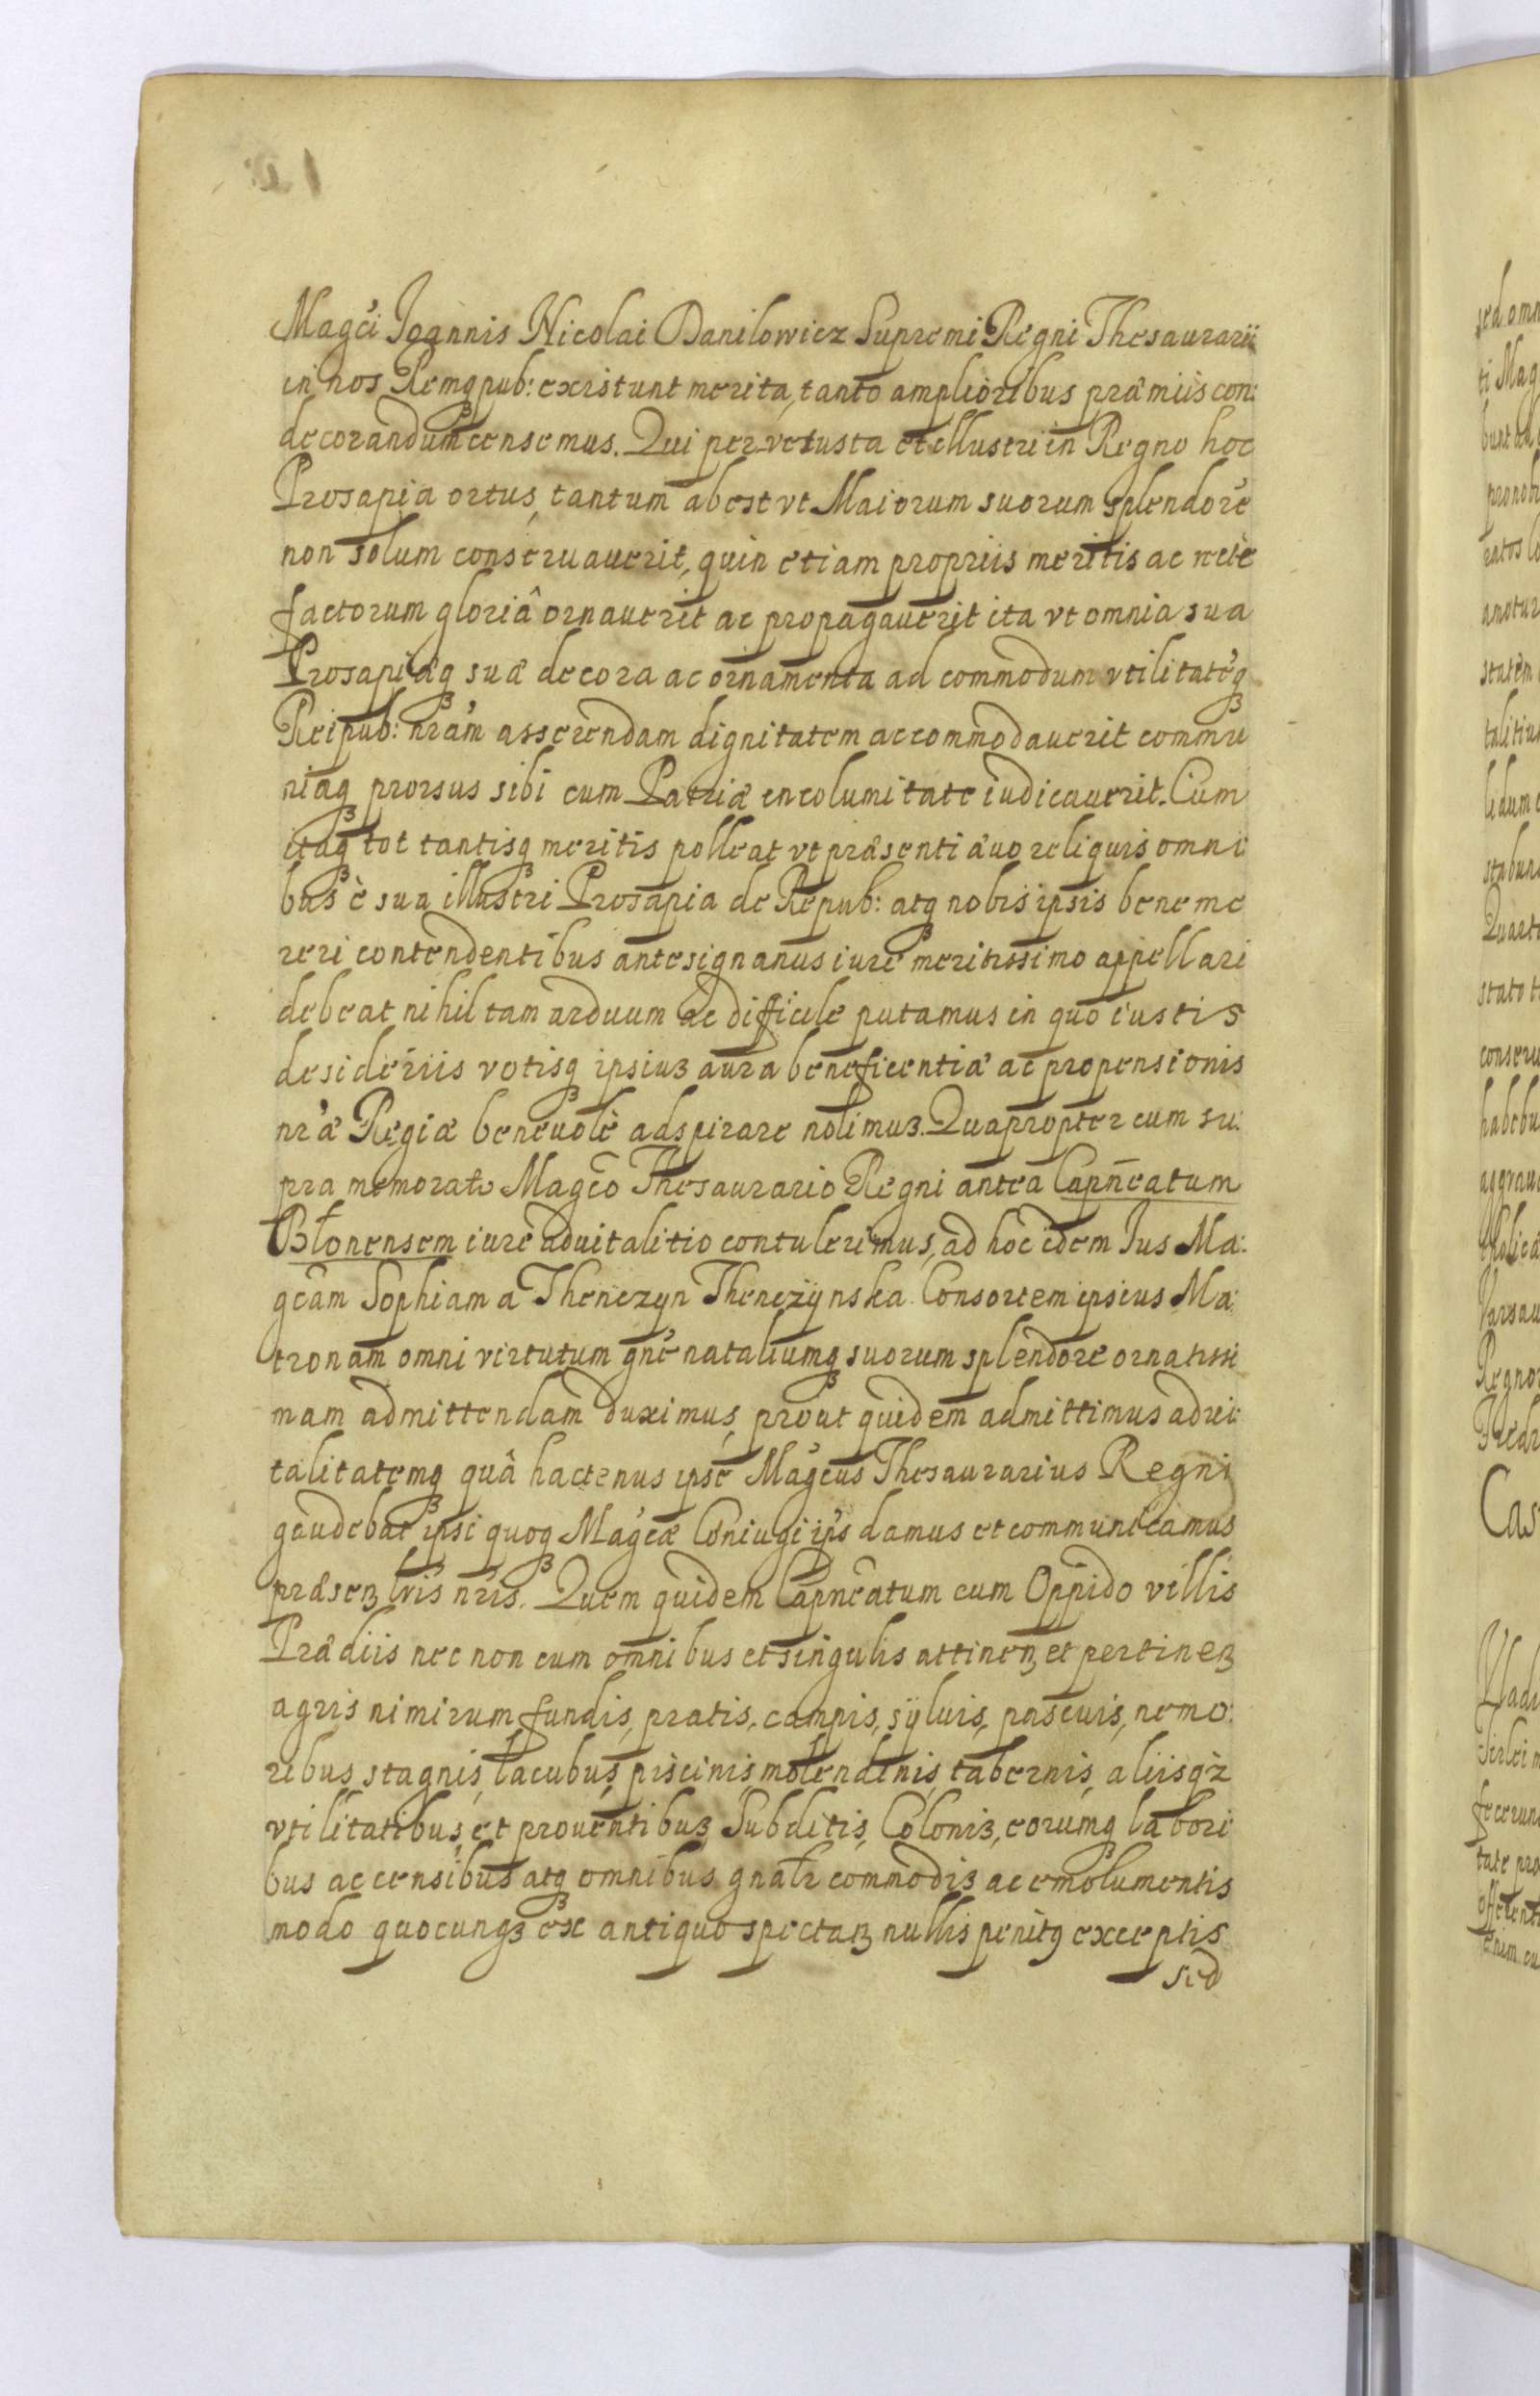 Magci Joannis Nicolai Danilowicz Supremi Regni Thesaurarii
in nos Remqꝫ pub: existunt merita, tanto amplioribus præmiis con:
decorandum censemus. Qui per vetusta et illustri in Regno hoc
Prosapia ortus, tantum abest vt Maiorum suorum splendorē
non solum conseruauerit, quin etiam propriis meritis ac rectè
factorum gloriâ ornauerit ac propagauerit ita vt omnia sua
Prosapiæqꝫ suæ decora ac ornamenta ad commodum vtilitatēqꝫ
Reipub: nr̃am asserendam dignitatem accommodauerit commu
niaqꝫ prorsus sibi cum Patriæ incolumitate iudicauerit. Cum
itaqꝫ tot tantisqꝫ meritis polleat vt præsenti æuo reliquis omni
bus è sua illustri Prosapia de Repub: atqꝫ nobis ipsis bene me
reri contendentibus antesignanus iure meritissimo appellari
debeat nihil tam arduum ac difficile putamus in quo iustis
desideriis votisqꝫ ipsius aura beneficentiæ ac propensionis
nr̃æ Regiæ beneuolè adspirare nolimus. Quapropter cum su:
pra memorato Magco Thesaurario Regni antea Capn̄eatum
Błonensem iure aduitalitio contulerimus, ad hoc idem Jus Ma:
gcam Sophiam a Thenczyn Thenczÿnska Consortem ipsius Ma:
tronam omni virtutum gñe nataliumqꝫ suorum splendore ornatissi
mam admittendam duximus, prout quidem admittimus advi:
talitatemqꝫ quâ hactenus ipse Magcus Thesaurarius Regni
gaudebat ipsi quoqꝫ Magcæ Coniugi ips damus et communicamus
præsenꝫ lris nris. Quem quidem Capn̄eatum cum Oppido villis
Prædiis nec non cum omnibus et singulis attinenꝫ et pertinenꝫ
agris nimirum fundis, pratis, campis, sÿluis, pascuis, nemo:
ribus stagnis, lacubus, piscinis, molendinis, tabernis, aliisqꝫ
vtilitatibus, et prouentibus Subditis, Colonis, eorumqꝫ labori
bus ac censibus atqꝫ omnibus gnalr commodis ac emolumentis
modo quocunqꝫ ex antiquo spectanꝫ nullis penitꝰ exceptis
sed